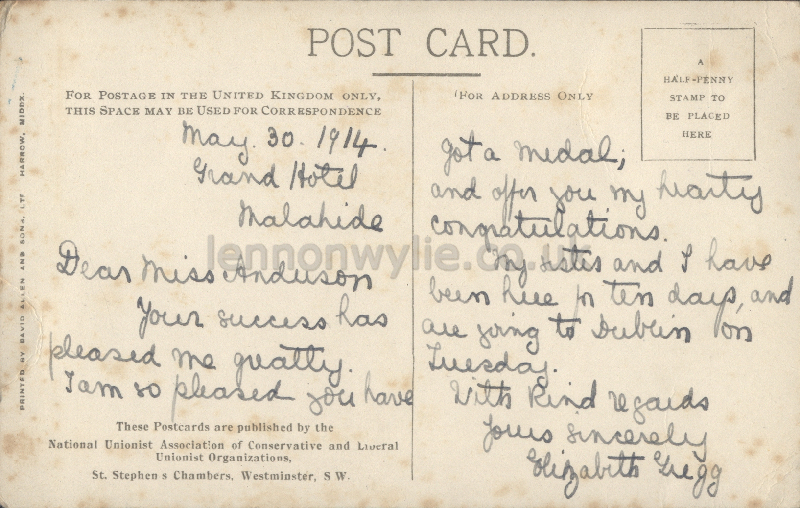 POST CARD.
FOR POSTAGE IN THE UNITED KINGDOM ONLY,
THIS SPACE MAY BE USED FOR CORRESPONDENCE
(FOR ADDRESS ONLY
A
HALF-PENNY
STAMP TO
BE PLACED
HERE
PRINTED BY DAVID ALLEN AND SONS, LTD HARROW, MIDDX.
May. 30. 1914.
Grand Hotel
Malahide
Dear Miss Anderson
Your success has
pleased me greatly.
I am so pleased you have
got a medal;
and offer you my hearty
congratulations.
My sister and I have
been here for ten days, and
are going to Dublin on
Tuesday.
With kind regards
Yours sincerely
Elizabeth Gregg
These Postcards are published by the
National Unionist Association of Conservative and Liberal
Unionist Organizations,
St. Stephen's Chambers, Westminster, S.W.
lennonwylie.co.uk